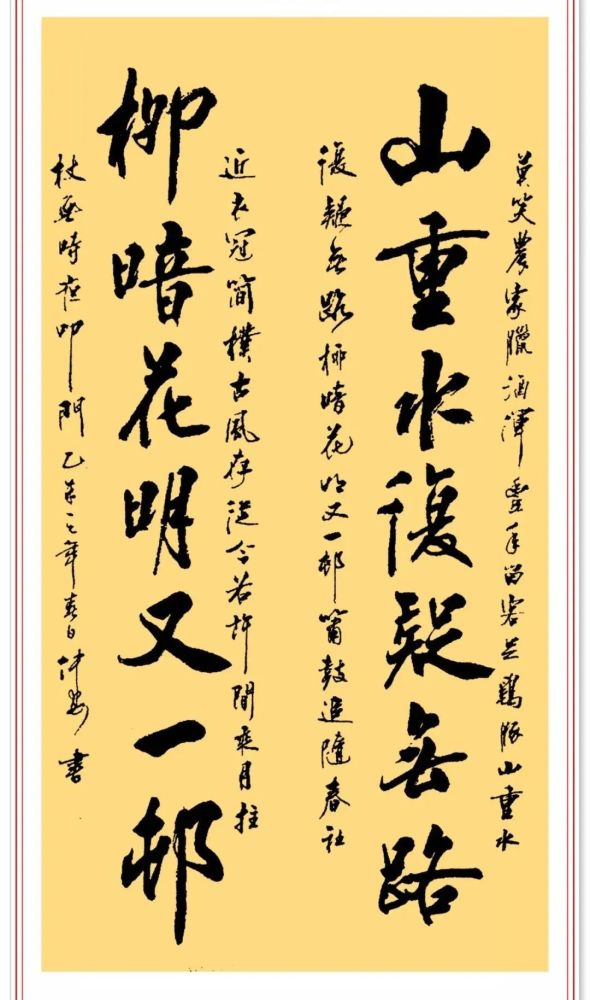 莫笑農家臘酒渾豐年留客足鷄豚山重水
山重水復疑無路
復疑無路柳暗花明又一邨簫鼓追隨春社
近衣冠簡樸古風存從今若許閒乘月拄
柳暗花明又一邨
杖無時夜叩門乙未之年春日仲安書